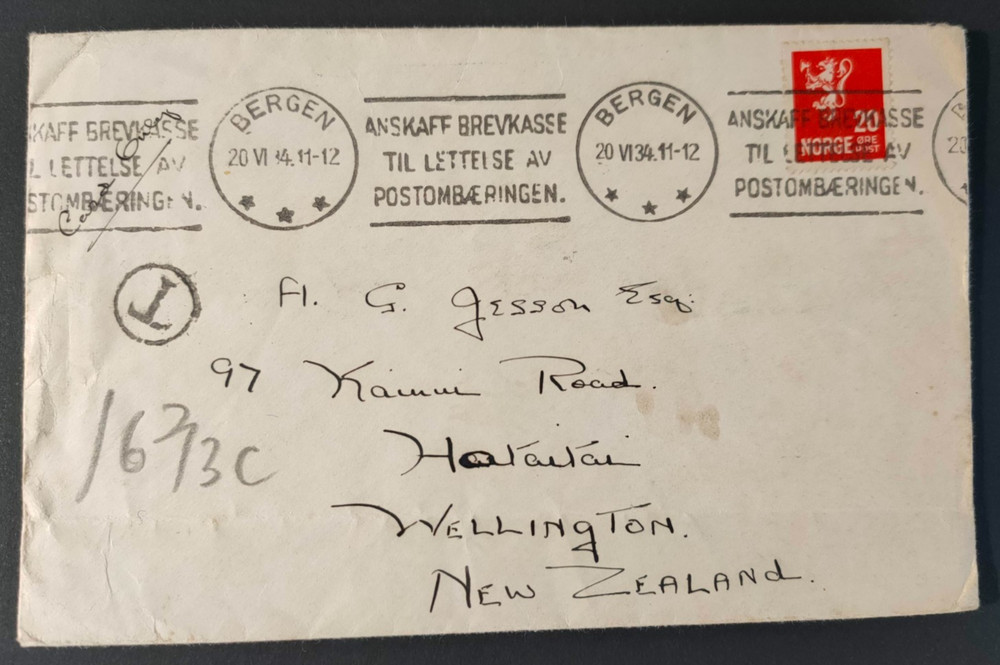 BERGEN
20 VI 34.11-12
ANSKAFF BREVKASSE
TIL LETTELSE AV
POSTOMBÆRINGEN.
BERGEN
20 VI 34.11-12
ANSKAFF BREVKASSE
TIL LETTELSE AV
POSTOMBÆRINGEN.
KAFF BREVKASSE
L LETTELSE AV
STOMBÆRINGEN.
20
NORGE ØRE
POST
T
H. G. Jesson Esq.
97 Kainui Road.
Hataitai
WELLINGTON.
NEW ZEALAND.
16 2/3 C